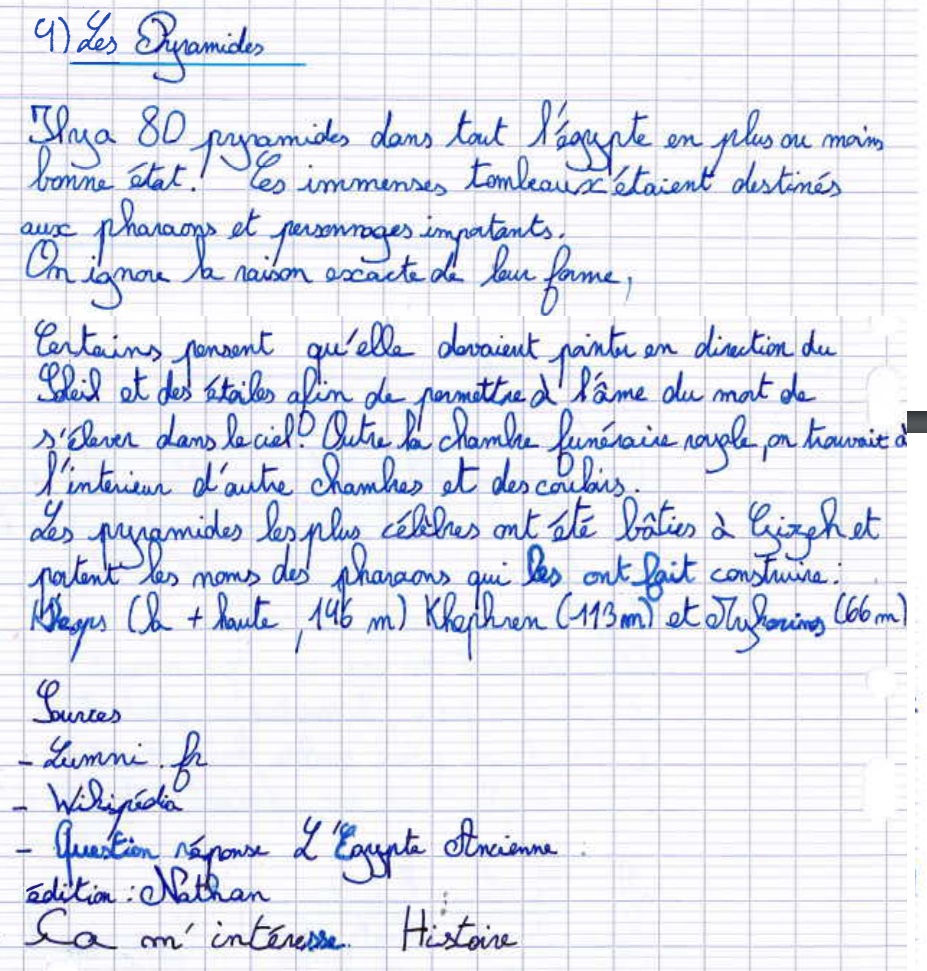 4) Les Pyramides
Il y a 80 pyramides dans tout l'égypte en plus ou moins
bonne état. Ces immenses tombeaux étaient destinés
aux pharaons et personnages importants.
On ignore la raison exacte de leur forme,
Certains pensent qu'elle devaient pointer en direction du
Soleil et des étoiles afin de permettre à l'âme du mort de
s'élever dans le ciel. Outre la chambre funéraire royale, on trouvait à
l'interieur d'autre chambres et des couloirs.
Les pyramides les plus célèbres ont été bâties à Gizeh et
portent les noms des pharaons qui les ont fait construire :
Kheops (la + haute, 146 m) Khephren (-113m) et Mykerins (66 m)
Sources
- Lumni.fr
- Wikipédia
- Question réponse L'Egypte Ancienne
édition : Nathan
Ça m'intéresse Histoire